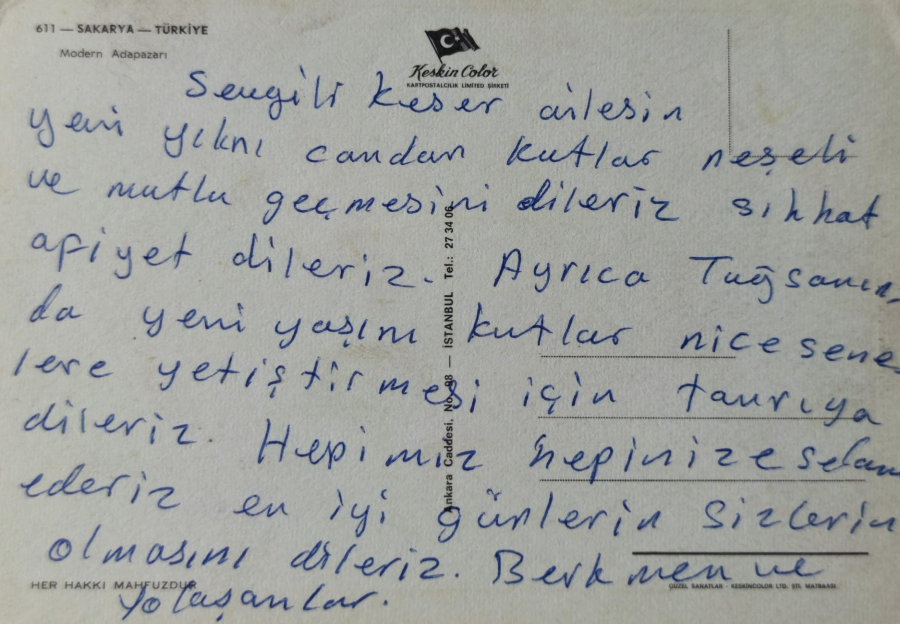 611 — SAKARYA — TÜRKİYE
Modern Adapazarı
Keskin Color
KARTPOSTALCILIK LIMITED ŞİRKETİ
Sevgili Keser ailesin
yeni yılını candan kutlar neşeli
ve mutlu geçmesini dileriz sıhhat
afiyet dileriz. Ayrıca Tuğsanın
da yeni yaşını kutlar nice sene
lere yetiştirmesi için tanrıya
dileriz. Hepimiz hepinize selam
ederiz en iyi günlerin sizlerin
olmasını dileriz. Berkmen ve
Yolaşanlar.
Ankara Caddesi, No. 98 — İSTANBUL Tel.: 27 34 06
HER HAKKI MAHFUZDUR
GÜZEL SANATLAR - KESKİNCOLOR LTD. ŞTİ. MATBAASI